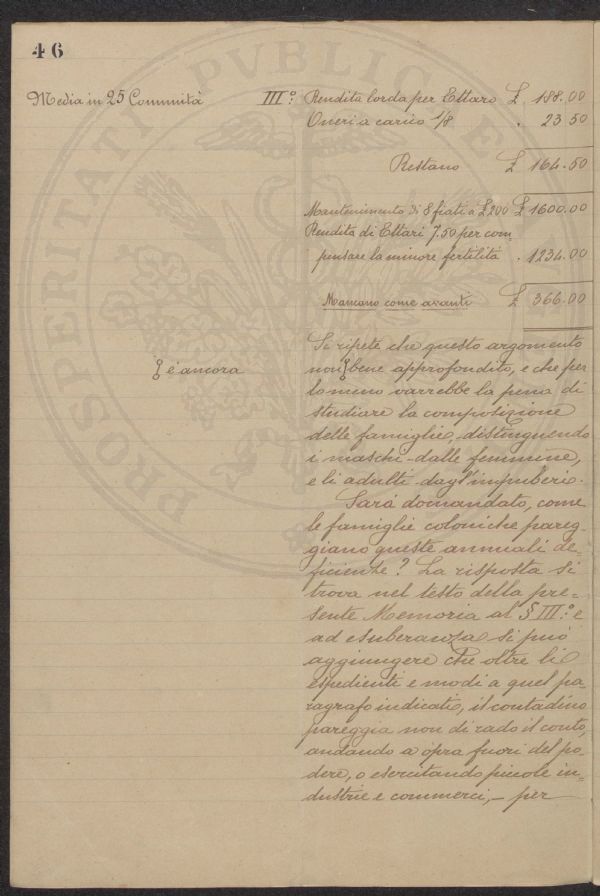 46
PROSPERITATI PVBLICAE
Media in 25 Communità
IIIº: Rendita lorda per Ettaro £. 188.00
Oneri a carico 1/8 . 23 50
Restano £ 164.50
Mantenimento di 8 fiati a £200 £ 1600.00
Rendita di Ettari 7.50 per com„
pensare la minore fertilità . 1234.00
Mancano come avanti £ 366.00
Si ripete che questo argomento
è ancora
non bene approfondito, e che per
lo meno varrebbe la pena di
studiare la composizione
delle famiglie, distinguendo
i maschi dalle femmine,
e li adulti dagl'impuberi.
Sarà domandato, come
le famiglie coloniche pareg„
giano queste annuali de„
ficienze? La risposta si
trova nel testo della pre„
sente Memoria al § IIIº: e
ad esuberanza si può
aggiungere che oltre li
espedienti e modi a quel pa„
ragrafo indicati, il contadino
pareggia non di rado il conto,
andando a opra fuori del po„
dere, o esercitando piccole in„
dustrie e commerci, – per